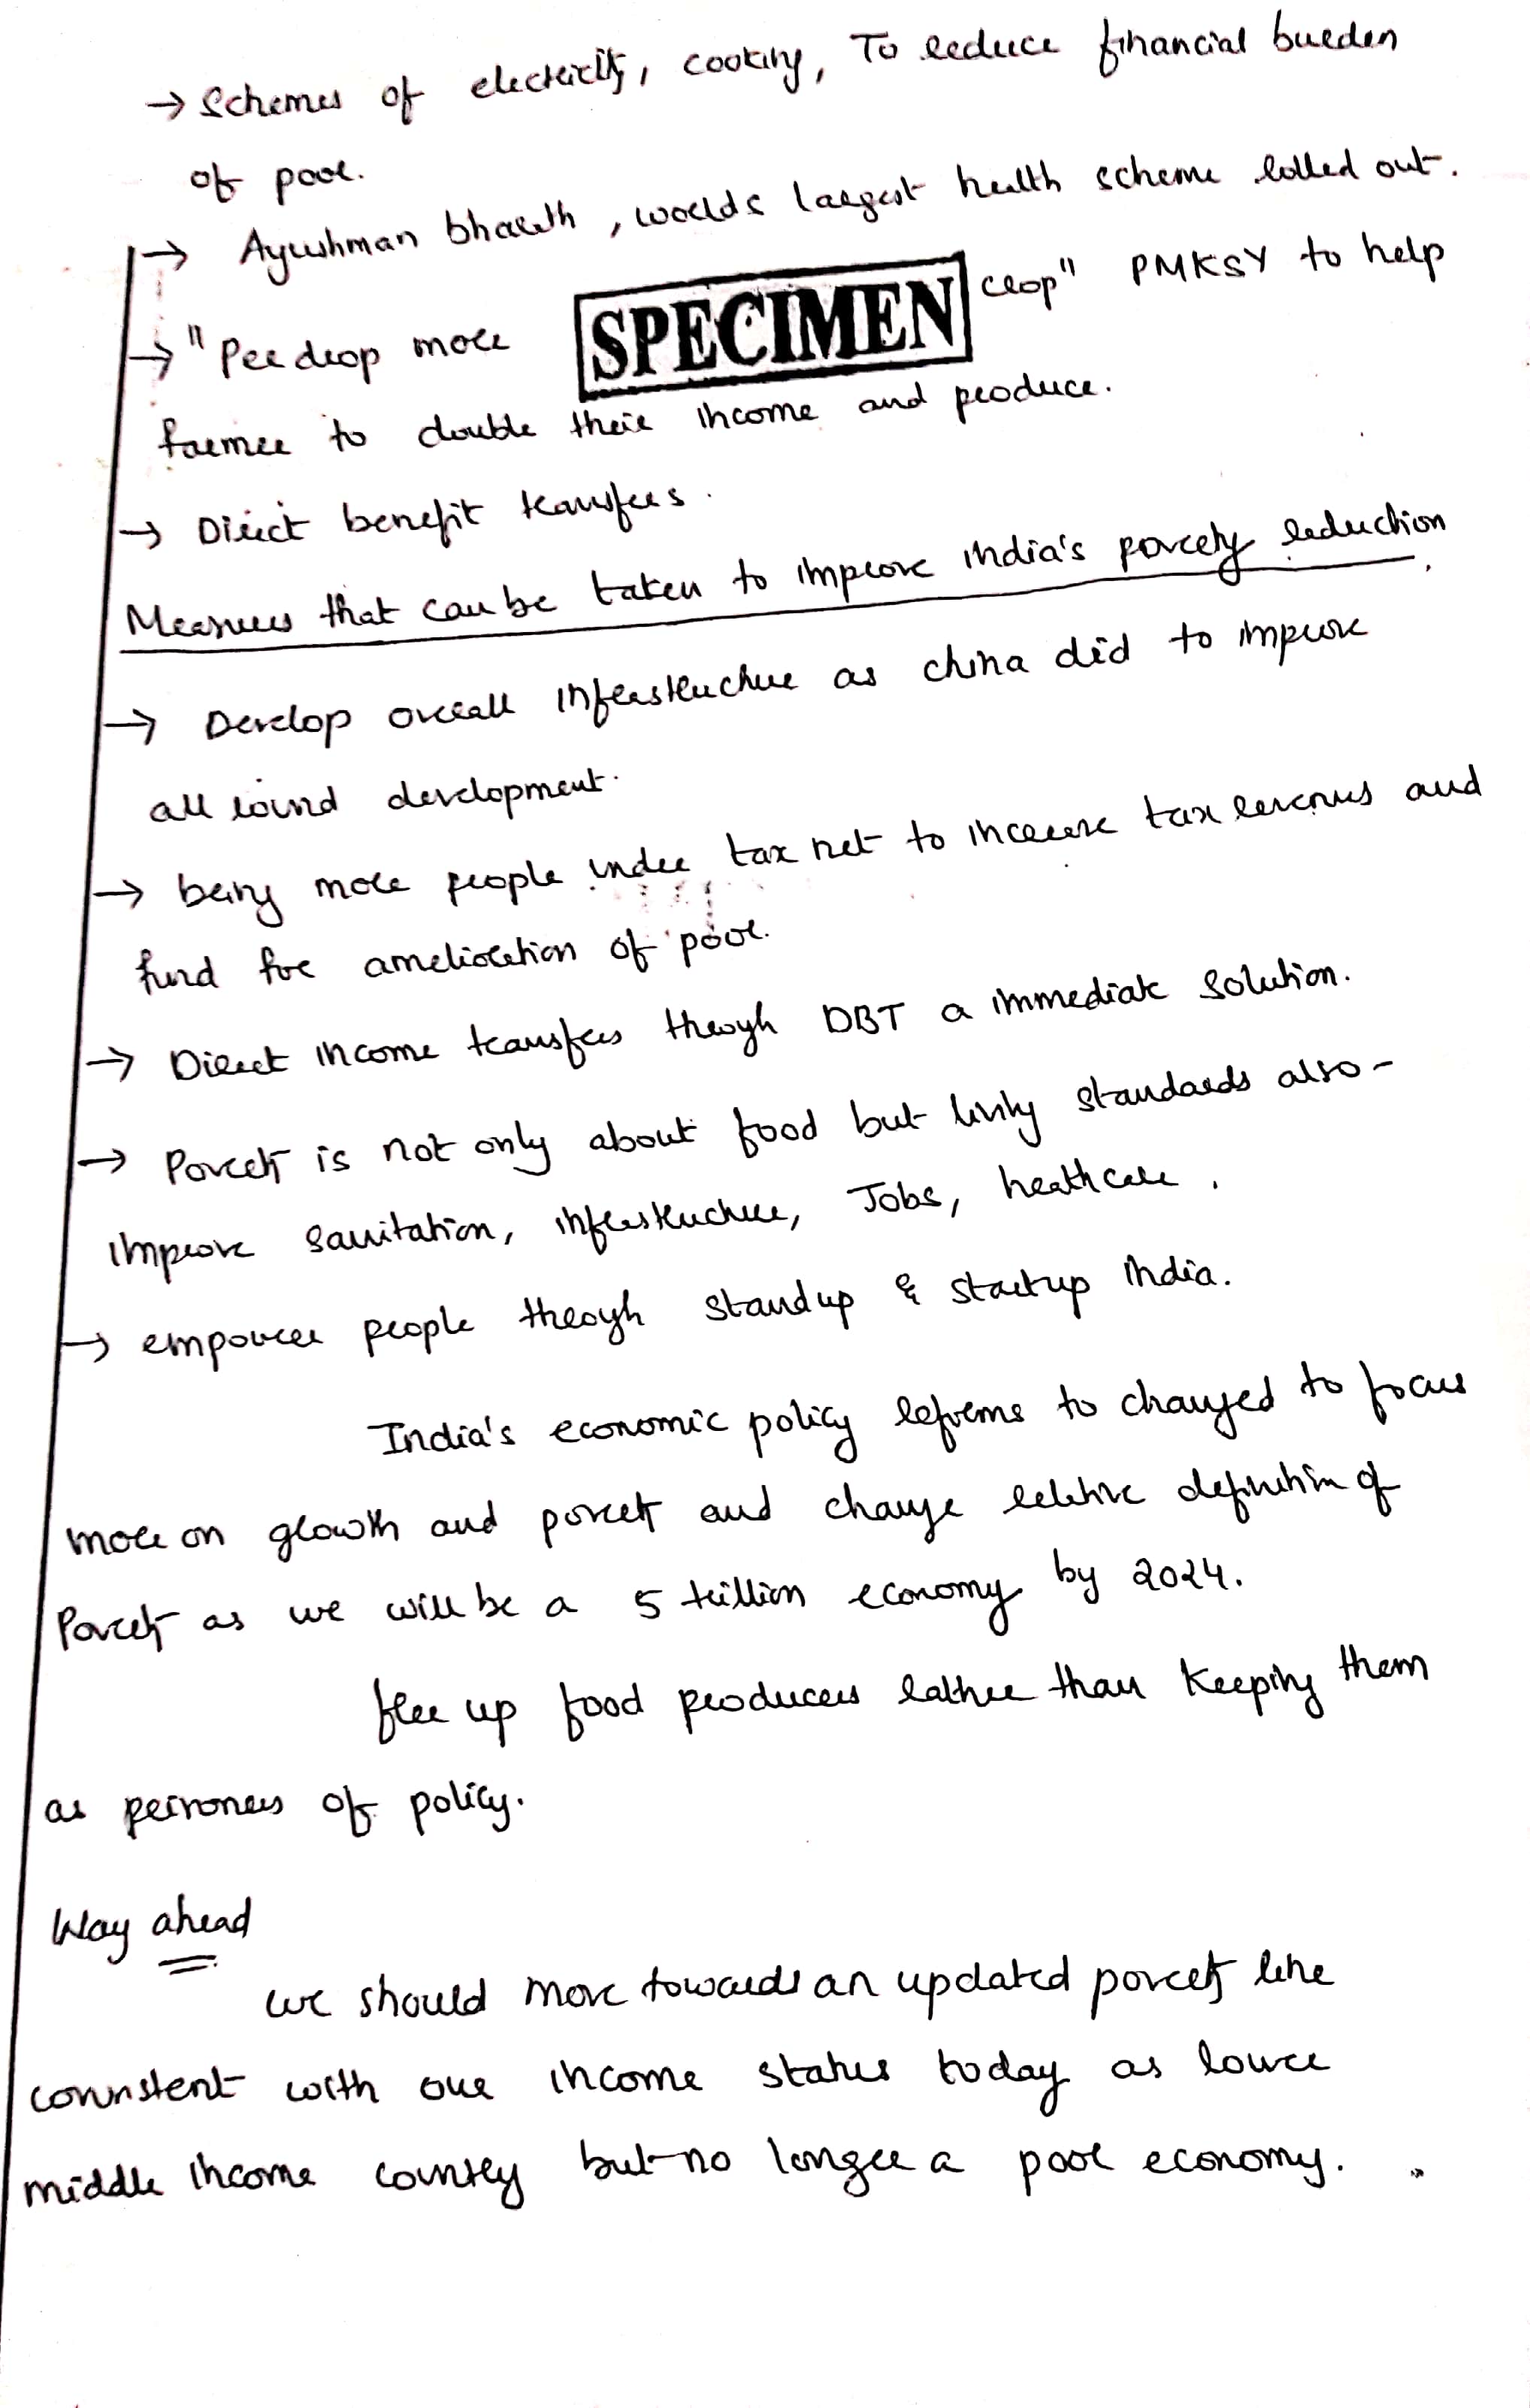 → Schemes of electricity, cooking, To reduce financial burden
of poor.
→ Ayushman bharath, worlds largest health scheme rolled out.
→ "Per drop more SPECIMEN crop" PMKSY to help
farmer to double their income and produce.
→ Direct benefit transfers.
Measures that can be taken to improve india's poverty reduction
→ Develop overall infrastructure as china did to improve
all round development.
→ bring more people under tax net to increase tax revenus and
fund for amelioration of poor.
→ Direct income transfers through DBT a immediate solution.
→ Poverty is not only about food but living standards also -
improve sanitation, infrastructure, Jobs, heathcare.
→ empower people through standup & startup india.
India's economic policy reforms to changed to focus
more on growth and poverty and change relative definition of
Poverty as we will be a 5 trillion economy by 2024.
free up food producers rather than keeping them
as prisoners of policy.
Way ahead
we should move towards an updated poverty line
consistent with our income status today as lower
middle income country but no longer a poor economy.